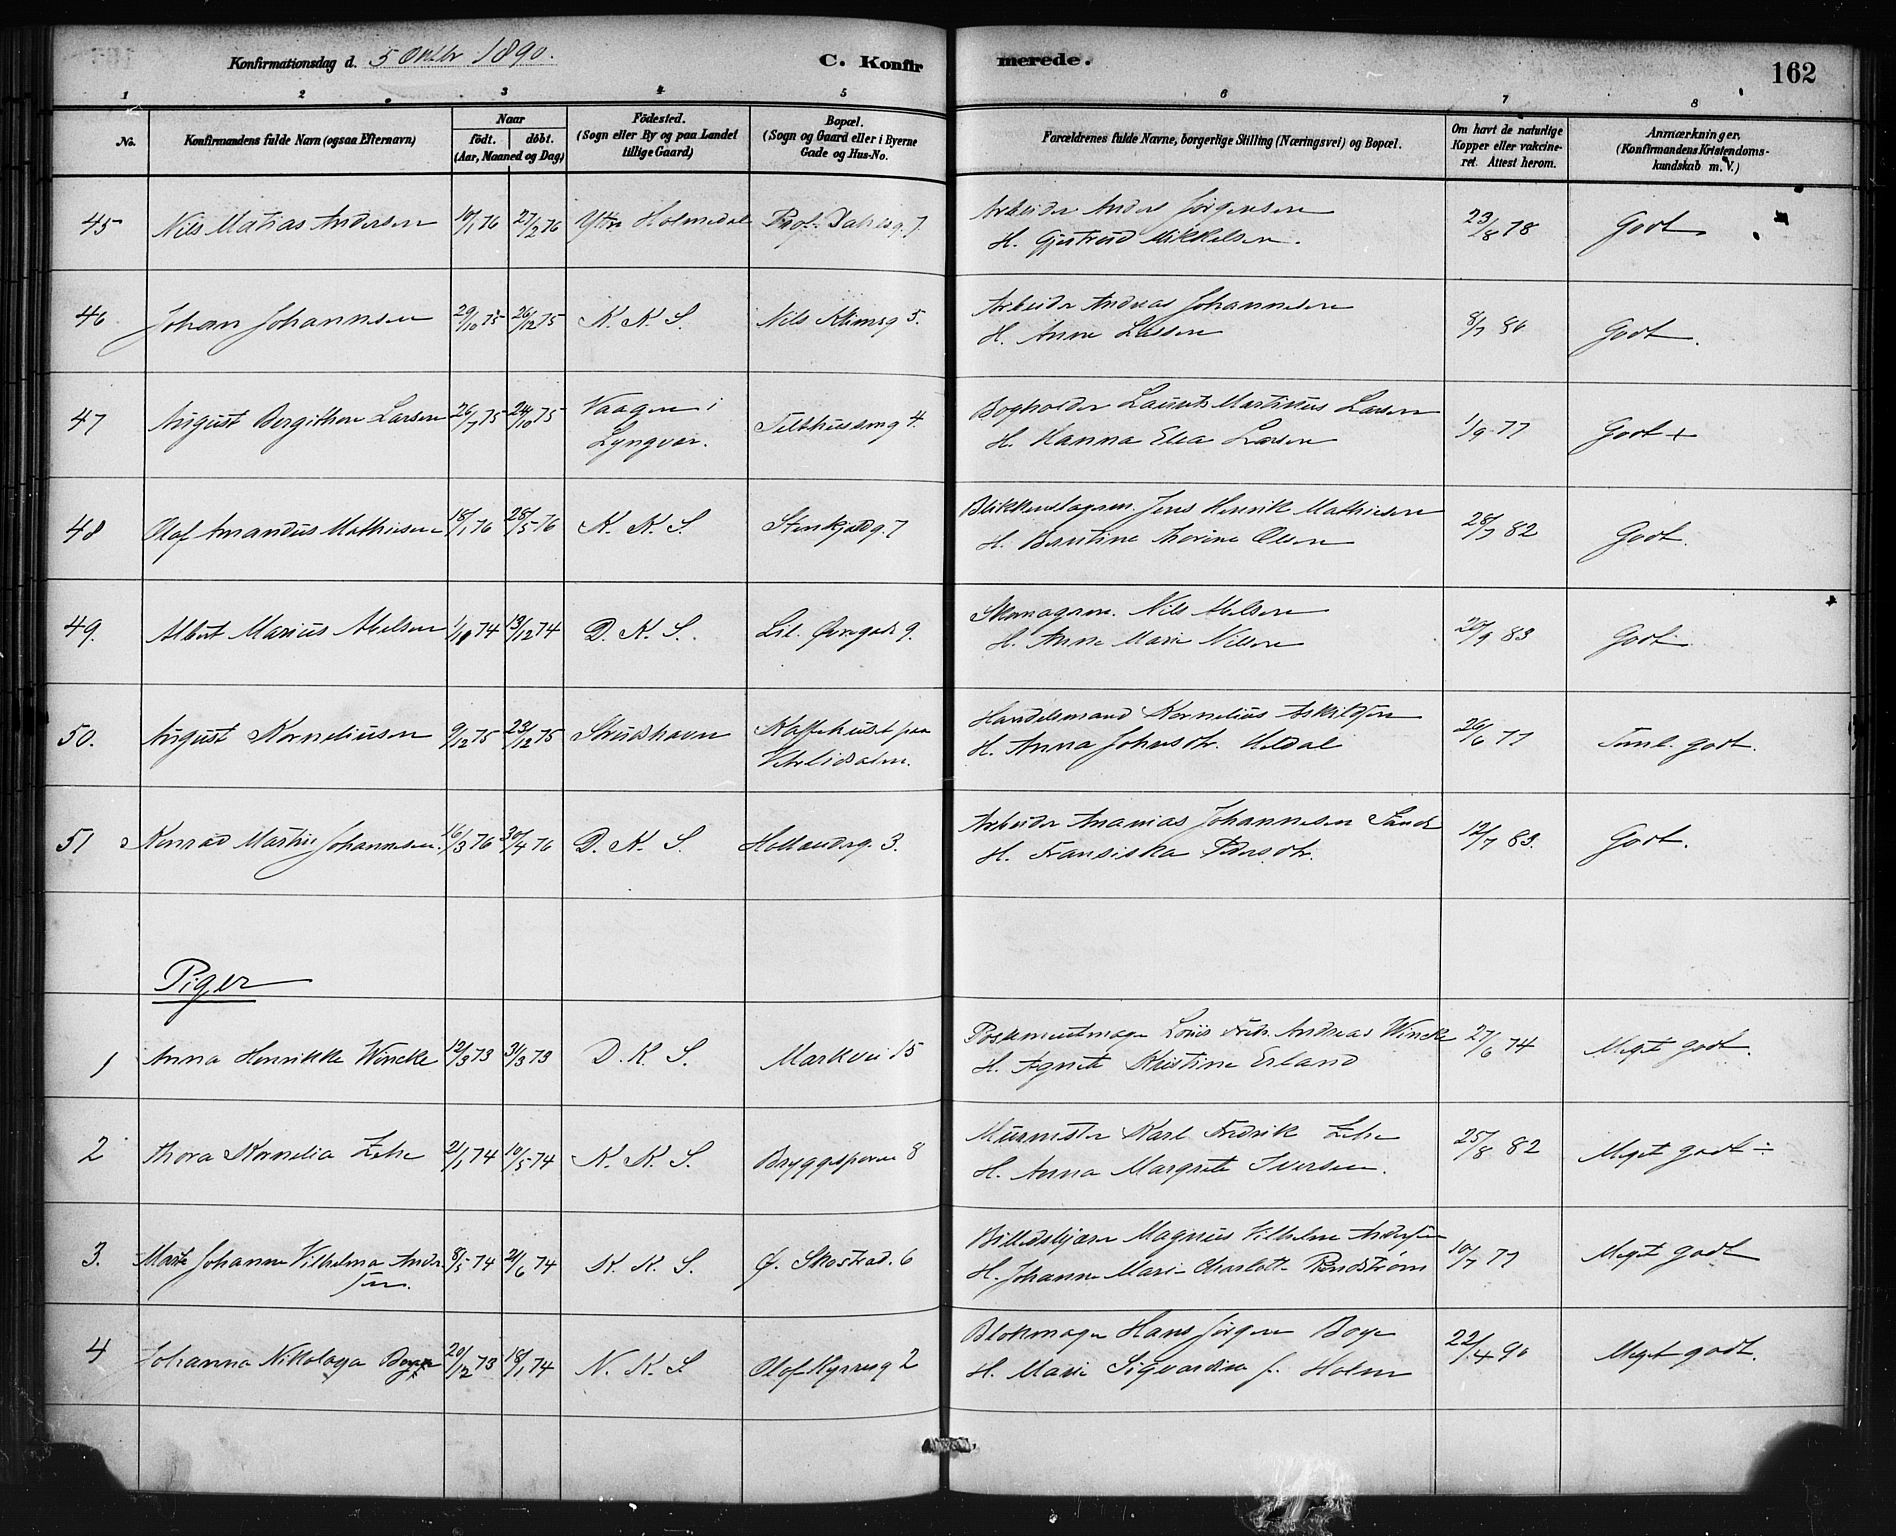 Konfirmationsdag d. 5 Oktbr 1890.
C. Konfirmerede.
162
1 2 3 4 5 6 7 8
No.
Konfirmandens fulde Navn (ogsaa Efternavn)
Naar
födt. döbt.
(Aar, Maaned og Dag)
Födested.
(Sogn eller By og paa Landet
tillige Gaard)
Bopæl.
(Sogn og Gaard eller i Byerne
Gade og Hus-No.
Forældrenes fulde Navne, borgerlige Stilling (Næringsvei) og Bopæl.
Om havt de naturlige
Kopper eller vakcine-
ret. Attest herom.
Anmærkninger,
(Konfirmandens Kristendoms-
kundskab m. V.)
45 Nils Matias Andersen 10/1 76 27/2 76 Yttre Holmedal Prof. Dahlsg. 7
Arbeider Anders Jørgensen
H. Gjertrud Mikkelsen.
23/8 78 Godt.
46 Johan Johannsen 29/10 75 26/12 75 K. K. S. Nils Klimsg 5.
Arbeider Andreas Johannesen
H. Anna Larsen
8/7 86 Godt.
47 August Bergithon Larsen 26/7 75 24/10 75 Vaagen i
Lyngvær.
4.
Bogholder Laurits Martinus Larsen
H. Hanna Elea Larsen
1/9 77 Godt +
48 Olaf Amandus Mathiesen 18/1 76 28/5 76 K. K. S. Stenkjeldg. 7
Blikkenslagersv. Jens Henrik Mathiesen
H. Bertine Thorine Olsen
28/7 82 Godt.
49. Albert Marius Abelsen 1/10 74 13/12 74 D. K. S. Lil. Øvregade 9.
Skomagersv. Nils Abelsen
H. Anne Marie Nilsen
20/9 83 Godt.
50. August Korneliusen 9/12 75 23/12 75 Strudshavn Kaffehuset paa
Vetrlidsalm.
Handelsmand Kornelius Askildsen
H. Anna Johnsdtr. Heldal
26/6 77 Teml. godt.
51 Konrad Martin Johannsen. 16/3 76 30/4 76 D. K. S. Hollandsg. 3.
Arbeider Ananias Johannesen Sande
H. Fransiska Pedersdtr.
12/7 83. Godt.
Piger
1 Anna Henrikke Wencke 12/3 73 31/3 73 D. K. S. Markvei 15
Postamentmager Louis Fredr. Andreas Wencke
H. Agnete Kristine Erland
27/6 74 Meget godt.
2 Thora Kornelia Zetre 21/1 74 10/5 74 K. K. S. Bryggesporen 8
Murmester Karl Fredrik Zetre
H. Anna Margrete Iversen.
25/8 82 Meget godt ÷
3. Marte Johanne Vilhelma Ander-
sen.
8/5 74 21/6 74 K. K. S. Ø. Skostræd. 6
Billedskjærer Magnus Vilhelm Andersen
H. Johanne Marie Charlotte Rundstrøm
10/7 77 Meget godt
4 Johanna Nikolaya Boye 20/12 73 18/1 74 N. K. S. Olaf Kyrresg 2
Blokmager Hans Jørgen Boye
H. Marie Sigvardine f. Holm
22/4 90 Meget godt.